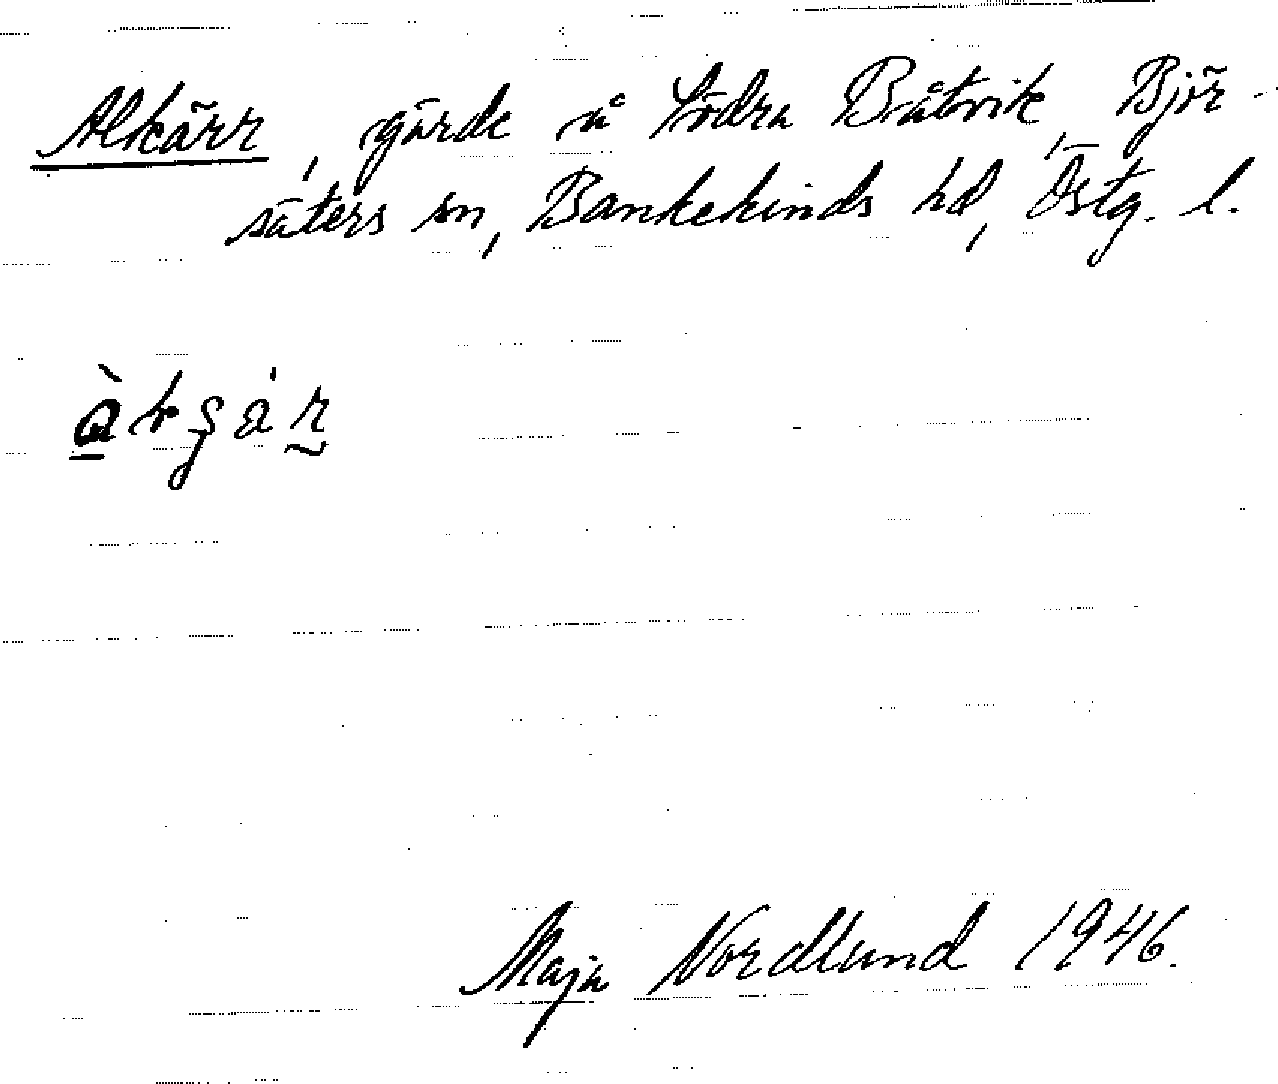 Alkärr, gärde å Södra Båtvik, Björ-
säters sn, Bankekinds hd, Östg. l.
Maja Nordlund 1946.